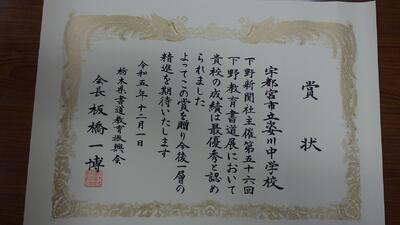 賞状
宇都宮市立姿川中学校
下野新聞社主催第五十六回
下野教育書道展において
貴校の成績は最優秀と認め
られました
よってこの賞を贈り今後一層の
精進を期待いたします
令和五年十二月一日
栃木県書道教育振興会
会長 板橋一博